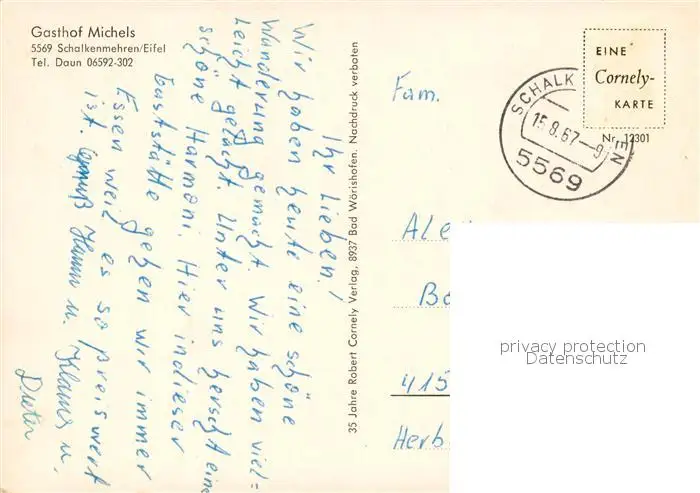 Gasthof Michels
5569 Schalkenmehren/Eifel
Tel. Daun 06592-302
Ihr Lieben!
Wir haben heute eine schöne
Wanderung gemacht. Wir haben viel=
leicht gelacht. Unter uns herscht eine
schöne Harmoni. Hier in dieser
Gaststätte gehen wir immer
Essen weil es so preiswert
ist. Gruß Hanni u. Klaus u.
Dieter
35 Jahre Robert Cornely Verlag, 8937 Bad Wörishofen. Nachdruck verboten
EINE
Cornely-
KARTE
Nr. 12301
SCHALK
EN
15.8.67-9
5569
Fam.
Ale
Be
415
Herb
privacy protection
Datenschutz